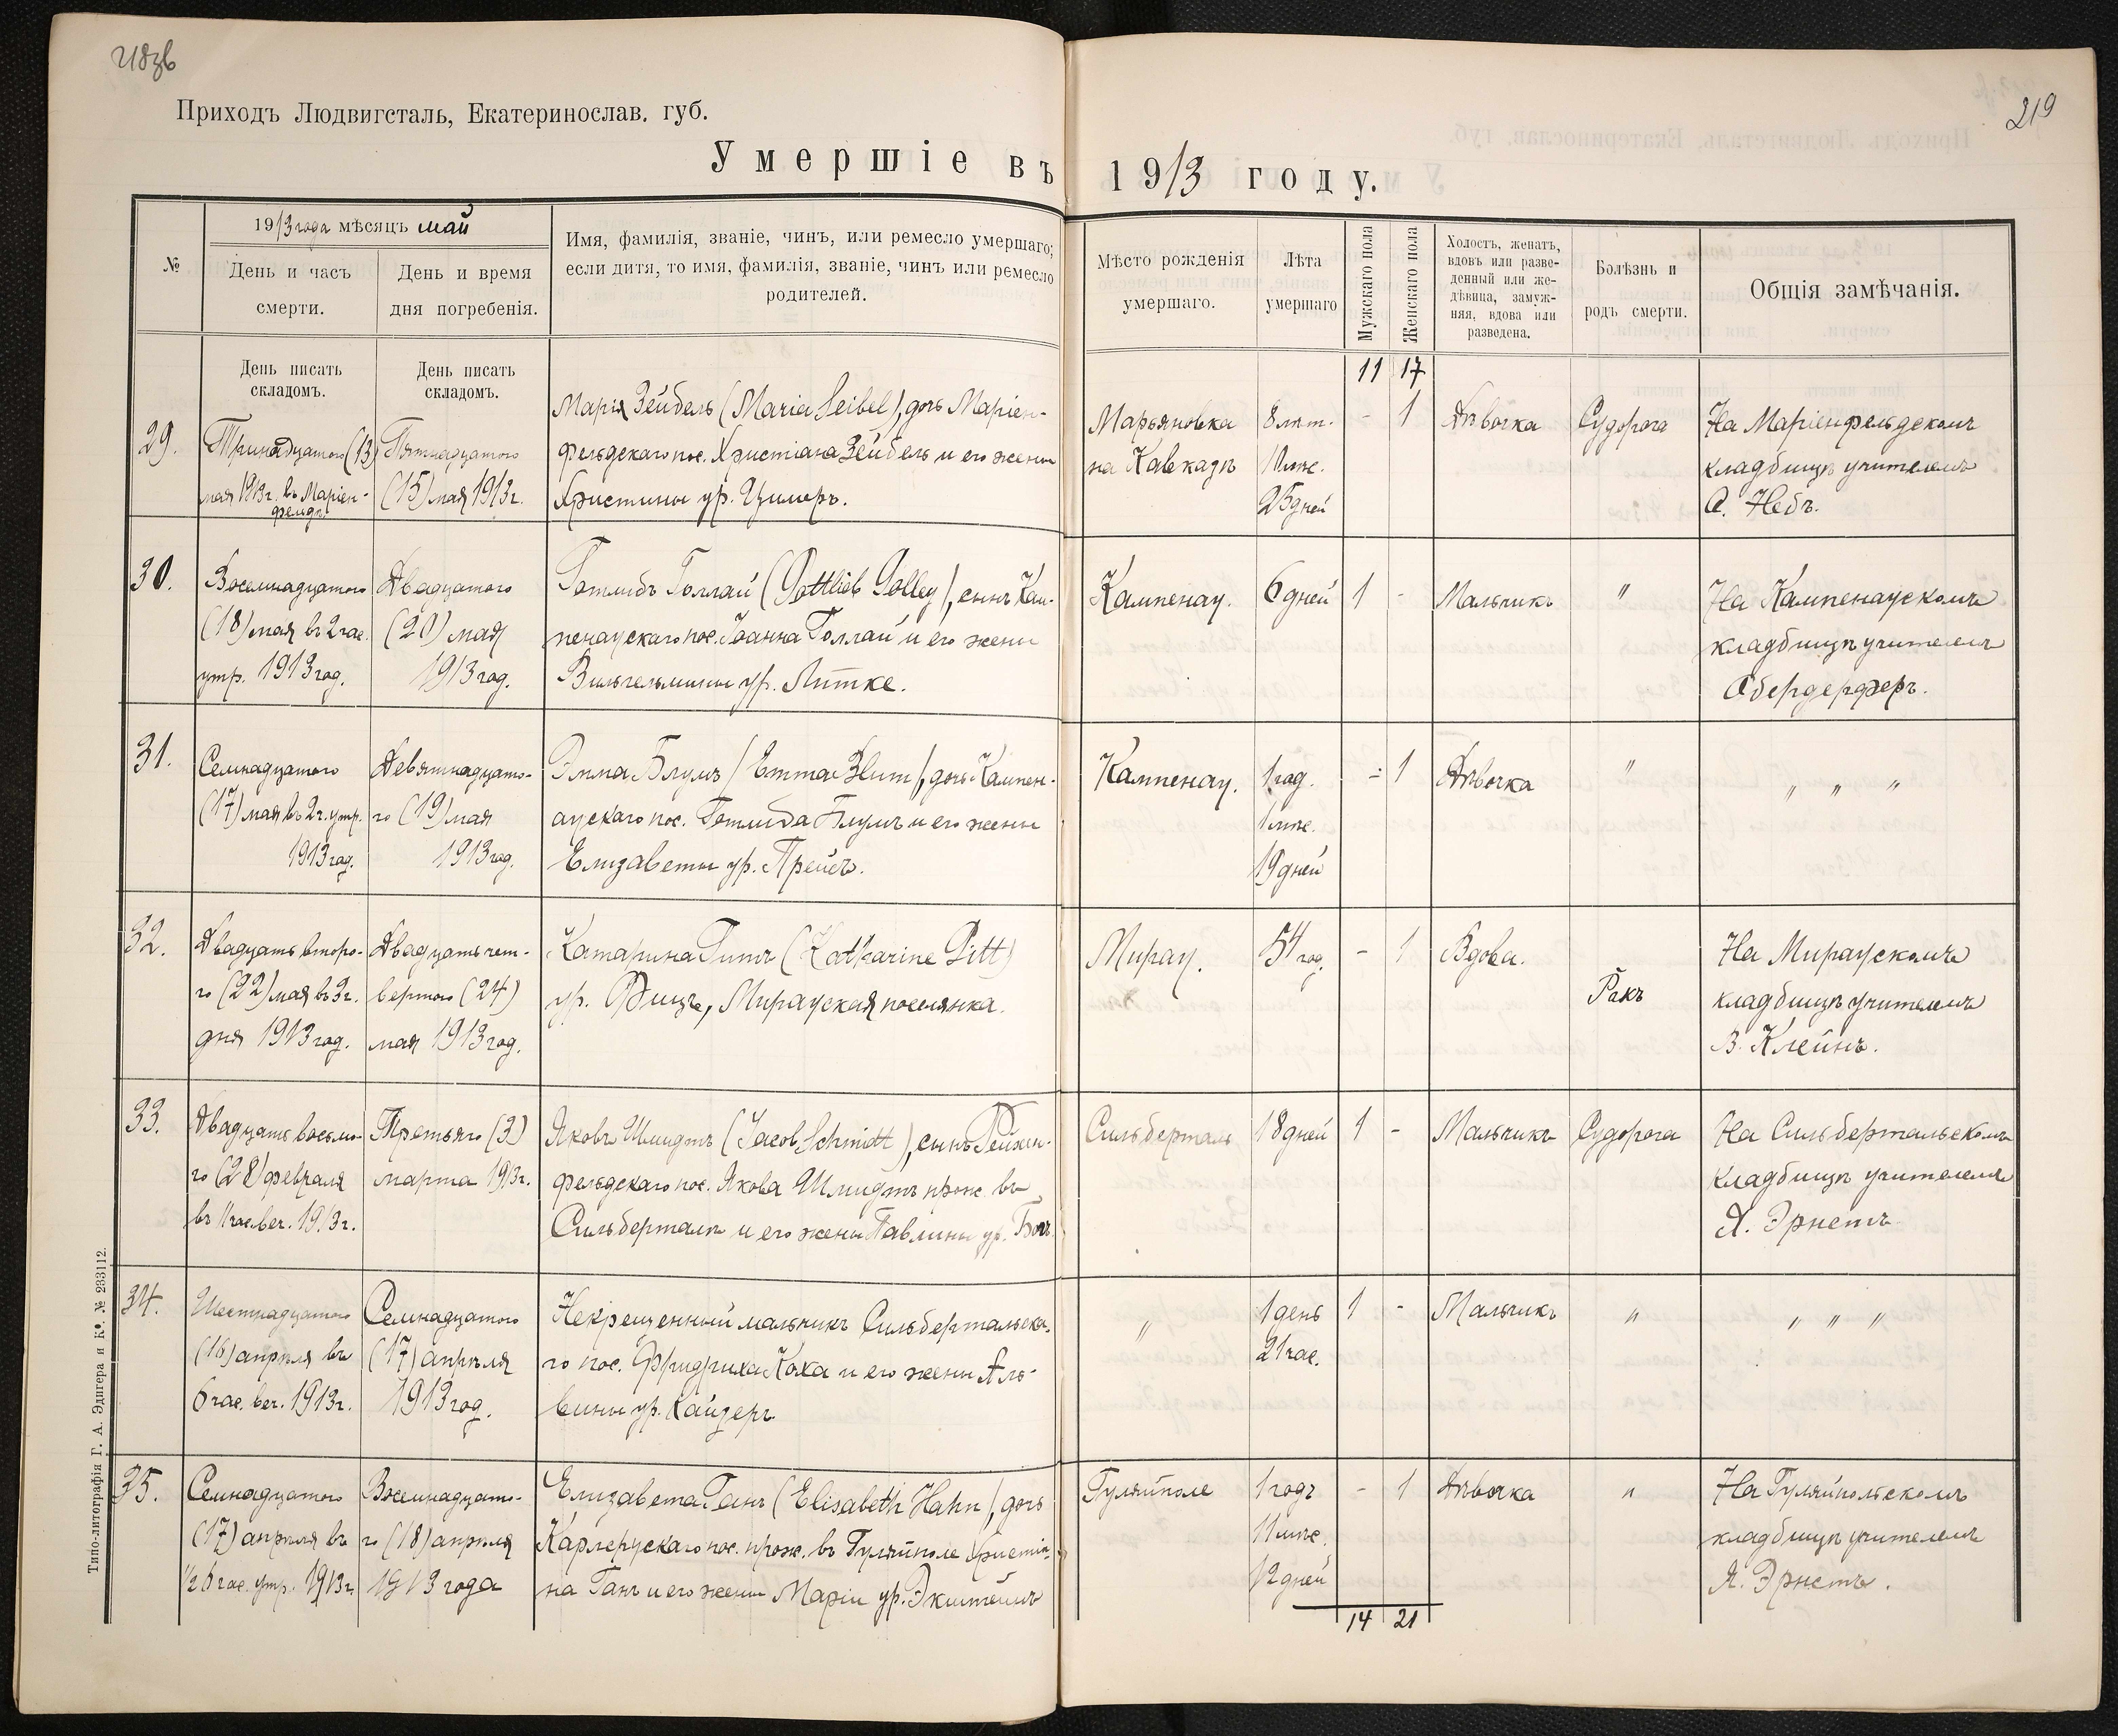 218зв
Приходъ Людвигсталь, Екатеринослав. губ.
Умершіе въ
№
1913 года мѣсяцъ май
День и часъ
смерти.
День и время
дня погребенія.
Имя, фамилія, званіе, чинъ, или ремесло умершаго;
если дитя, то имя, фамилія, званіе, чинъ или ремесло
родителей.
День писать
складомъ.
День писать
складомъ.
29.
Тринадцатого (13)
мая 1913г. въ Маріен-
фельдѣ
Пятнадцатого
(15) мая 1913г.
Марія Зейбель (Maria Seibel), дочь Маріен-
фельдскаго пос. Христіана Зейбель и его жены
Христины ур. Цимеръ.
30.
Восемнадцатого
(18) мая въ 2 час.
утр. 1913 год.
Двадцатого
(20) мая
1913 год.
Готлибъ Голлай (Gottlieb Golley), сынъ Кам-
пенаускаго пос. Іоанна Голлай и его жены
Вильгельмины ур. Литке.
31.
Семнадцатого
(17) мая въ 2 ч. утр.
1913 год.
Девятнадцато-
го (19) мая
1913 год.
Эмма Блумъ (Emma Blum), дочь Кампен-
аускаго пос. Готлиба Блумъ и его жены
Елизаветы ур. Прейсъ.
32.
Двадцать второ-
го (22) мая въ 3 г.
дня 1913 год.
Двадцать чет-
вертого (24)
мая 1913 год.
Катарина Гиттъ (Katharine Gitt)
ур. Фицъ, Мирауская поселянка.
33.
Двадцать восьмо-
го (28) февраля
въ 11 час. веч. 1913 г.
Третьяго (3)
марта 1913г.
Яковъ Шмидтъ (Jacob Schmidt), сынъ Рейхен-
фельдскаго пос. Якова Шмидтъ прож. въ
Сильберталѣ и его жены Павлины ур.
34.
Шестнадцатого
(16) апрѣля въ
6 час. веч. 1913г.
Семнадцатого
(17) апрѣля
1913 год.
Некрещенный мальчикъ Сильбертальска-
го пос. Фридриха Коха и его жены Аль-
вины ур. Кайзеръ
35.
Семнадцатого
(17) апрѣля въ
½ 6 час. утр. 1913г.
Восемнадцато-
го (18) апрѣля
1913 года
Елизавета Ганъ (Elisabeth Hahn), дочь
Карлсрускаго пос. прож. въ Гуляйполе Христіа-
на Ганъ и его жены Маріи ур. Экштейнъ
Типо-литографія Г. А. Эдигера и Кº. № 233112.
219
1913 году.
Мѣсто рожденія
умершаго.
Лѣта
умершаго
Мужскаго пола
Женскаго пола
Холостъ, женатъ,
вдовъ или разве-
денный или же-
дѣвица, замуж-
няя, вдова или
разведена.
Болѣзнь и
родъ смерти.
Общія замѣчанія.
11 17
Марьяновка
на Кавказѣ
8 лѣт.
10 мѣс.
25 дней
- 1
Дѣвочка
Судорога
На Маріенфельдскомъ
кладбищѣ учителемъ
А. Небъ.
Кампенау.
6 дней
1 -
Мальчикъ
"
На Кампенаускомъ
кладбищѣ учителемъ
Обердерферъ.
Кампенау.
1 год.
1 мѣс.
19 дней
- 1
Дѣвочка
"
" " "
Мирау.
54 год.
- 1
Вдова.
Ракъ
На Мираускомъ
кладбищѣ учителемъ
В. Клейнъ.
Сильберталь
18 дней
1 -
Мальчикъ
Судорога
На Сильбертальскомъ
кладбищѣ учителемъ
Я. Эрнстъ
"
1 день
21 час.
1 -
Мальчикъ
"
" " "
Гуляйполе
1 годъ
11 мѣс.
12 дней
- 1
Дѣвочка
"
На Гуляйпольскомъ
кладбищѣ учителемъ
Я. Эрнстъ.
14 21